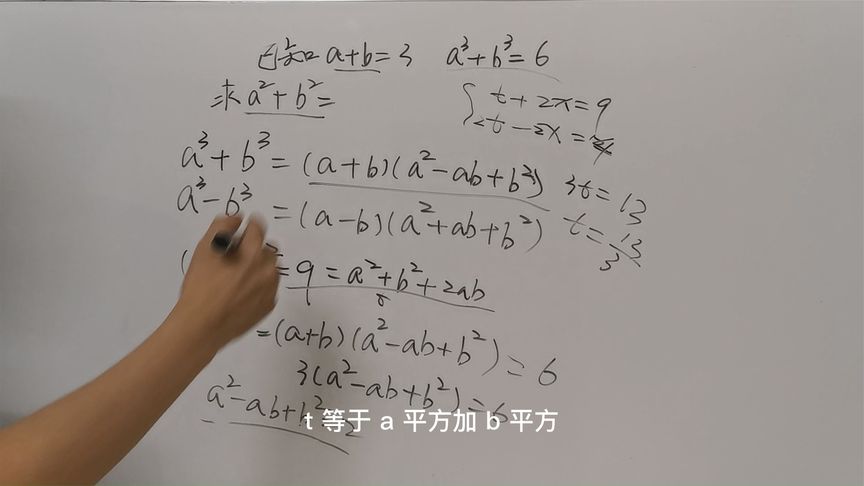 已知 a+b=3  a³+b³=6
求 a²+b²=
{ t+2x=9
2t-2x=4
a³+b³=(a+b)(a²-ab+b²)
3t=13
a³-b³=(a-b)(a²+ab+b²)
t=13/3
(
²=9=a²+b²+2ab
=(a+b)(a²-ab+b²)=6
3(a²-ab+b²)=6
a²-ab+b²=2
t 等于 a 平方加 b 平方